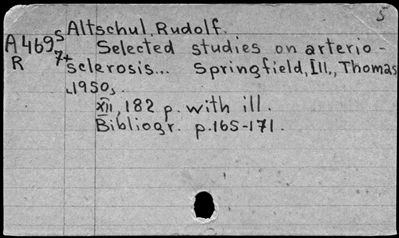 5
Altschul, Rudolf.
A469s Selected studies on arterio-
R 7+ sclerosis... Springfield, Ill., Thomas,
1950.
XII, 182 p. with ill.
Bibliogr. p.165-171.